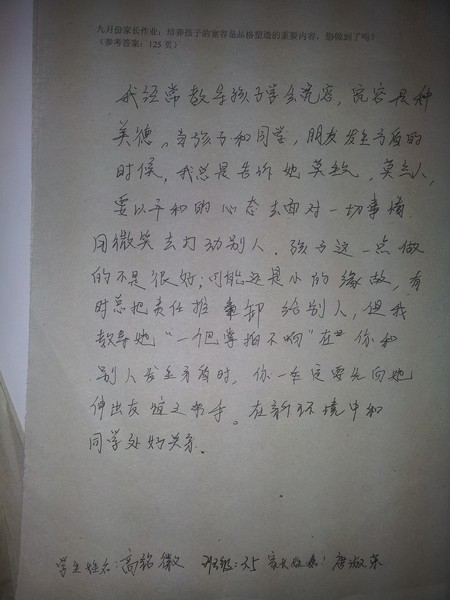 九月份家长作业：培养孩子的宽容是品格塑造的重要内容，您做到了吗？
（参考答案：125页）
我经常教导孩子学会宽容，宽容是种
美德。当孩子和同学，朋友发生矛盾的
时候，我总是告诉她莫生气，莫言人，
要以平和的心态去面对一切事情
用微笑去打动别人。孩子这一点做
的不是很好；可能还是小的缘故，有
时总把责任推卸给别人，但我
教导她“一个巴掌拍不响”在你和
别人发生矛盾时，你一定要先向她
伸出友谊之手。在新环境中和
同学处好关系。
学生姓名：高铭徽 班级：3.5 家长姓名：唐淑荣